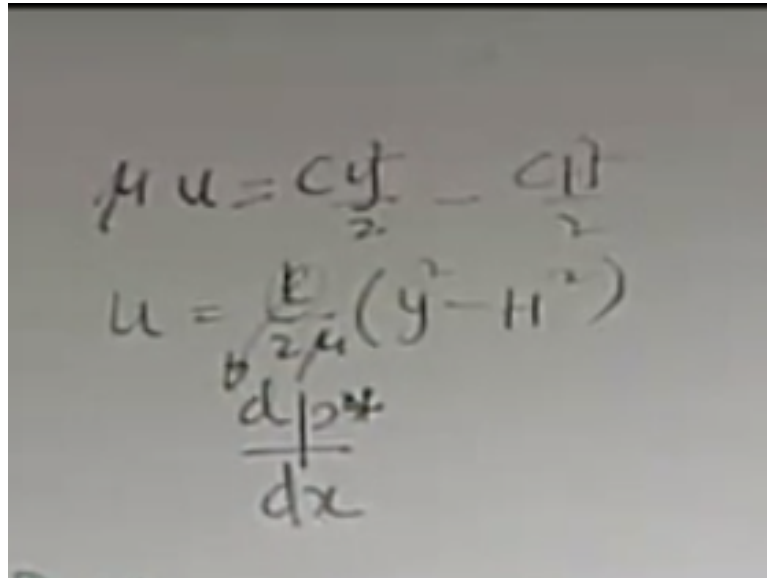 μu = Cy²/2 - CH²/2
u = C/2μ (y² - H²)
dp*/dx